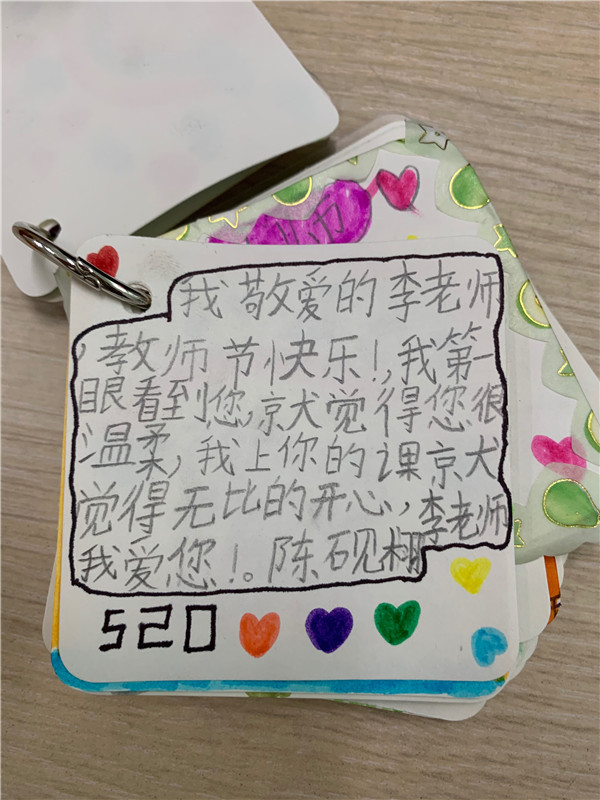 我敬爱的李老师
,教师节快乐!,我第一
眼看到您,就觉得您很
温柔,我上你的课就
觉得无比的开心,李老师
我爱您!。陈砚栩
520
师